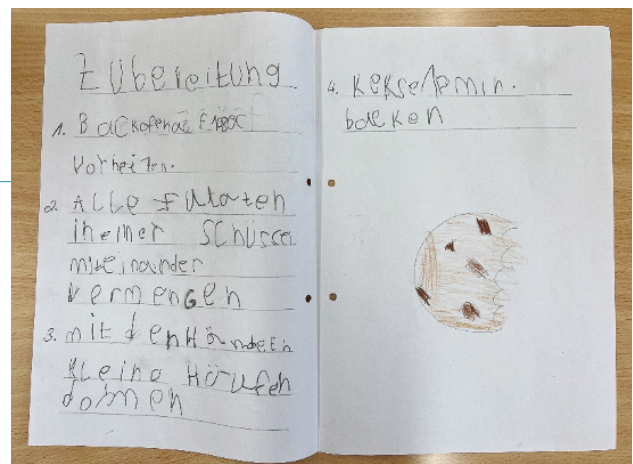 Zubereitung
1. Backofen auf
Vorheizen.
2. ALLe Zutaten
in einer Schüssel
miteinander
vermengen
3. mit den Händen
kLeine Häufen
formen
4. Kekse min.
backen